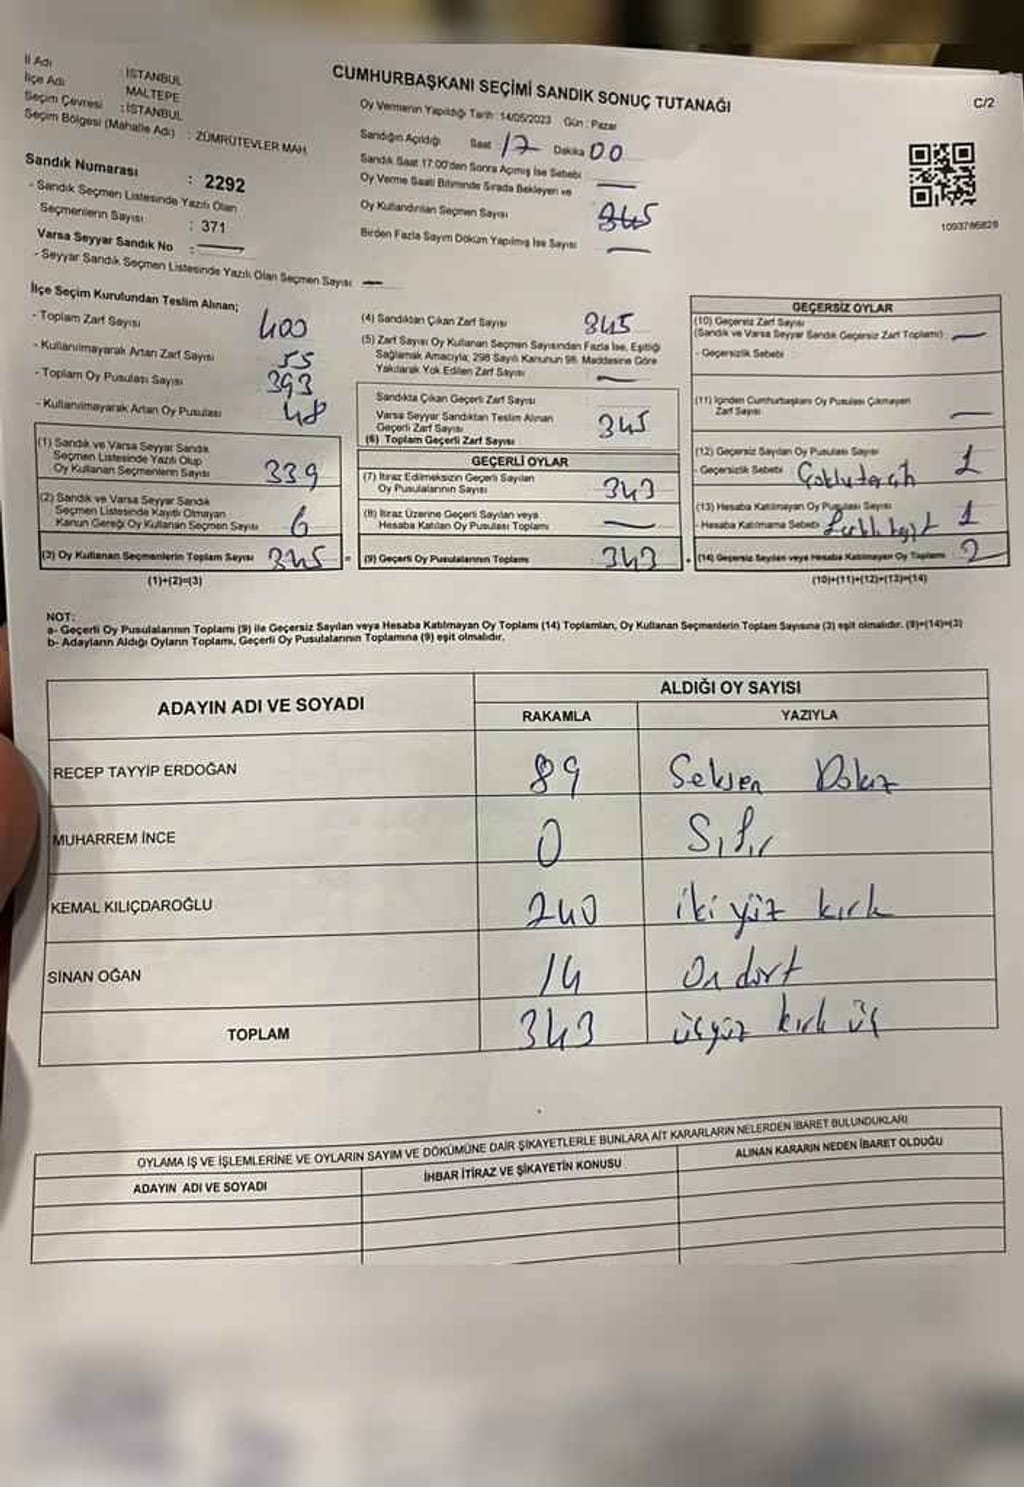 CUMHURBAŞKANI SEÇİMİ SANDIK SONUÇ TUTANAĞI
C/2
İl Adı : İSTANBUL
İlçe Adı MALTEPE
Seçim Çevresi : İSTANBUL
Seçim Bölgesi (Mahalle Adı) : ZÜMRÜTEVLER MAH.
Sandık Numarası : 2292
- Sandık Seçmen Listesinde Yazılı Olan
Seçmenlerin Sayısı : 371
Varsa Seyyar Sandık No : —
- Seyyar Sandık Seçmen Listesinde Yazılı Olan Seçmen Sayısı —
Oy Vermenin Yapıldığı Tarih : 14/05/2023 Gün : Pazar
Sandığın Açıldığı Saat 17 Dakika 00
Sandık Saat 17:00'den Sonra Açmış İse Sebebi
Oy Verme Saati Bitiminde Sırada Bekleyen ve —
Oy Kullandırılan Seçmen Sayısı 345
Birden Fazla Sayım Döküm Yapılmış İse Sayısı —
1093786829
İlçe Seçim Kurulundan Teslim Alınan;
- Toplam Zarf Sayısı 400
- Kullanılmayarak Artan Zarf Sayısı 55
- Toplam Oy Pusulası Sayısı 393
- Kullanılmayarak Artan Oy Pusulası 48
(1) Sandık ve Varsa Seyyar Sandık
Seçmen Listesinde Yazılı Olup
Oy Kullanan Seçmenlerin Sayısı 339
(2) Sandık ve Varsa Seyyar Sandık
Seçmen Listesinde Kayıtlı Olmayan
Kanun Gereği Oy Kullanan Seçmen Sayısı 6
(3) Oy Kullanan Seçmenlerin Toplam Sayısı 345 =
(1)+(2)=(3)
(4) Sandıktan Çıkan Zarf Sayısı 345
(5) Zarf Sayısı Oy Kullanan Seçmen Sayısından Fazla İse, Eşitliği
Sağlamak Amacıyla; 298 Sayılı Kanunun 98. Maddesine Göre
Yakılarak Yok Edilen Zarf Sayısı —
Sandıkta Çıkan Geçerli Zarf Sayısı
Varsa Seyyar Sandıktan Teslim Alınan
Geçerli Zarf Sayısı 345
(6) Toplam Geçerli Zarf Sayısı
GEÇERLİ OYLAR
(7) İtiraz Edilmeksizin Geçerli Sayılan
Oy Pusulalarının Sayısı 343
(8) İtiraz Üzerine Geçerli Sayılan veya
Hesaba Katılan Oy Pusulası Toplamı —
(9) Geçerli Oy Pusulalarının Toplamı 343 +
GEÇERSİZ OYLAR
(10) Geçersiz Zarf Sayısı
(Sandık ve Varsa Seyyar Sandık Geçersiz Zarf Toplamı) —
- Geçersizlik Sebebi
(11) İçinden Cumhurbaşkanı Oy Pusulası Çıkmayan
Zarf Sayısı —
(12) Geçersiz Sayılan Oy Pusulası Sayısı
- Geçersizlik Sebebi 1
(13) Hesaba Katılmayan Oy Pusulası Sayısı
- Hesaba Katılmama Sebebi 1
(14) Geçersiz Sayılan veya Hesaba Katılmayan Oy Toplamı 2
(10)+(11)+(12)+(13)=(14)
NOT:
a- Geçerli Oy Pusulalarının Toplamı (9) ile Geçersiz Sayılan veya Hesaba Katılmayan Oy Toplamı (14) Toplamları, Oy Kullanan Seçmenlerin Toplam Sayısına (3) eşit olmalıdır. (9)+(14)=(3)
b- Adayların Aldığı Oyların Toplamı, Geçerli Oy Pusulalarının Toplamına (9) eşit olmalıdır.
ADAYIN ADI VE SOYADI
ALDIĞI OY SAYISI
RAKAMLA YAZIYLA
RECEP TAYYİP ERDOĞAN 89 Seksen Dokuz
MUHARREM İNCE 0 Sıfır
KEMAL KILIÇDAROĞLU 240 iki yüz kırk
SİNAN OĞAN 14 On dört
TOPLAM 343 üçyüz kırk üç
OYLAMA İŞ VE İŞLEMLERİNE VE OYLARIN SAYIM VE DÖKÜMÜNE DAİR ŞİKAYETLERLE BUNLARA AİT KARARLARIN NELERDEN İBARET BULUNDUKLARI
ADAYIN ADI VE SOYADI İHBAR İTİRAZ VE ŞİKAYETİN KONUSU ALINAN KARARIN NEDEN İBARET OLDUĞU